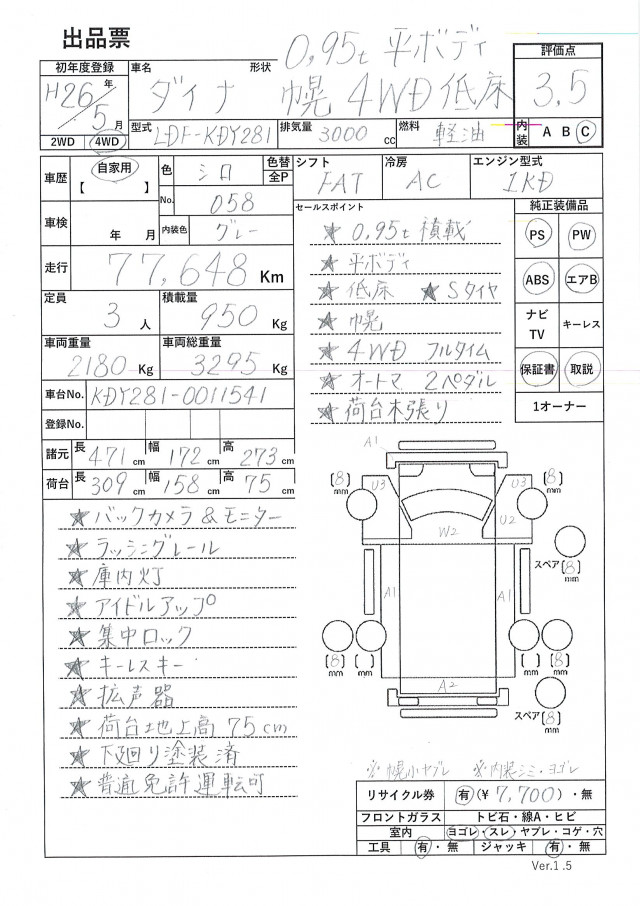 出品票
初年度登録 車名 形状 評価点
H26年 5月 ダイナ 0,95t 平ボディ
幌 4WD 低床 3.5
2WD 4WD 型式 LDF-KDY281 排気量 3000 cc 燃料 軽油 内装 A B C
車歴 自家用 【 】 色 シロ 色替 全P シフト FAT 冷房 AC エンジン型式 1KD
No. 058
車検 年 月 内装色 グレー
走行 77,648 Km
定員 3 人 積載量 950 Kg
車両重量 2180 Kg 車両総重量 3295 Kg
車台No. KDY281-0011541
登録No.
諸元 長 471 cm 幅 172 cm 高 273 cm
荷台 長 309 cm 幅 158 cm 高 75 cm
セールスポイント
★ 0,95t 積載
★ 平ボディ
★ 低床 ★ Sタイヤ
★ 幌
★ 4WD フルタイム
★ オートマ 2ペダル
★ 荷台木張り
純正装備品
PS PW
ABS エアB
ナビ TV キーレス
保証書 取説
1オーナー
★ バックカメラ&モニター
★ ラッシングレール
★ 庫内灯
★ アイドルアップ
★ 集中ロック
★ キーレスキー
★ 拡声器
★ 荷台地上高 75cm
★ 下廻り塗装済
★ 普通免許運転可
A1
(8) mm U3 U3 (8) mm
W2 U2
スペア (8) mm
A1 A1
(8) mm ( ) mm ( ) mm (8) mm
A2
スペア (8) mm
※幌小ヤブレ ※内装シミ・ヨゴレ
リサイクル券 有 (¥ 7,700)・無
フロントガラス トビ石・線A・ヒビ
室内 ヨゴレ・スレ・ヤブレ・コゲ・穴
工具 有・無 ジャッキ 有・無
Ver.1.5